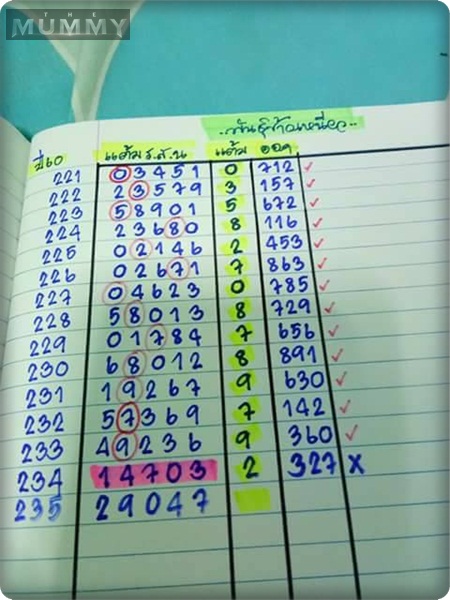 THE
MUMMY
..พันธุ์ข้าวเหนียว..
ปี 60 แต้ม ร.ส.น แต้ม ออก
221 03451 0 712 ✓
222 23579 3 157 ✓
223 58901 5 672 ✓
224 23680 8 116 ✓
225 02146 2 453 ✓
226 02671 7 863 ✓
227 04623 0 785 ✓
228 58013 8 729 ✓
229 01784 7 656 ✓
230 68012 8 891 ✓
231 19267 9 630 ✓
232 57369 7 142 ✓
233 49236 9 360 ✓
234 14703 2 327 X
235 29047